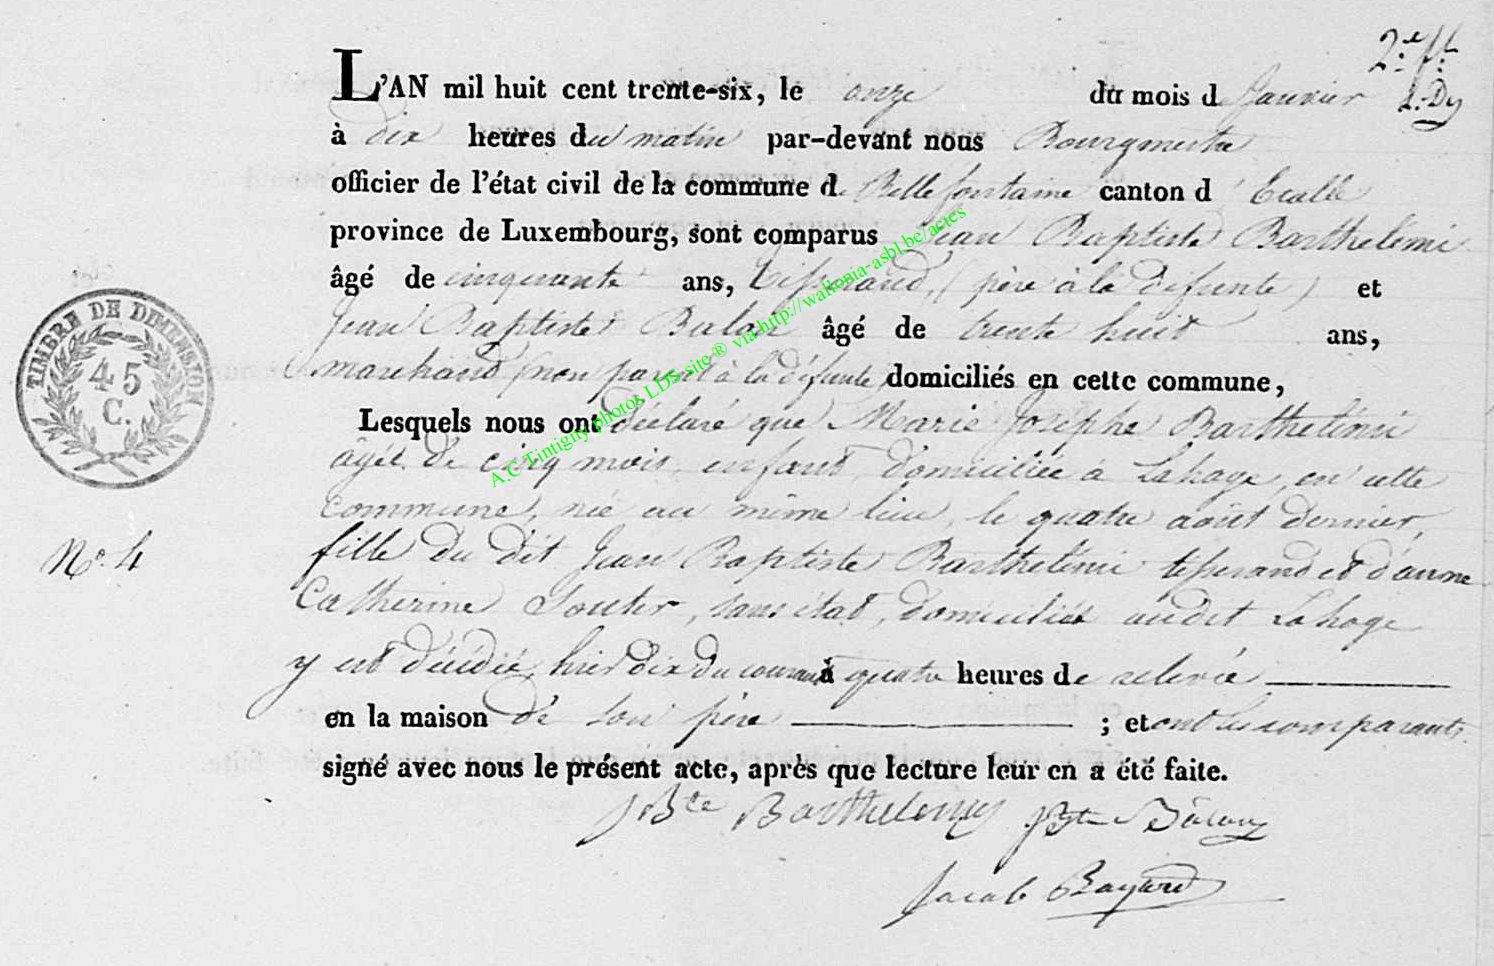 2.e ft.
L'AN mil huit cent trente-six, le onze du mois de Janvier
à dix heures du matin par-devant nous Bourgmestre
officier de l'état civil de la commune de Bellefontaine canton d'Etalle
province de Luxembourg, sont comparus Jean Baptiste Barthelemi
âgé de cinquante ans, tisserand, (père à la défunte) et
Jean Baptiste âgé de trente huit ans,
marchand (non parent à la défunte) domiciliés en cette commune,
Lesquels nous ont déclaré que Marie Josephe Barthelémi
âgée de cinq mois, enfant, domiciliée à Lahage, en cette
commune, née au même lieu, le quatre août dernier,
fille du dit Jean Baptiste Barthelémi tisserand et d'anne
Catherine Souter, sans état, domiciliés audit Lahage
y est décédée, hier dix du courant à quatre heures de relevée
en la maison de son père ; et ont les comparants
signé avec nous le présent acte, après que lecture leur en a été faite.
JBte Barthelemy JBte
Jacob Bayard
TIMBRE DE DIMENSION
45
C.
No. 4
A.C Tintigny photos LDS site ® via http://wallonia-asbl.be/actes